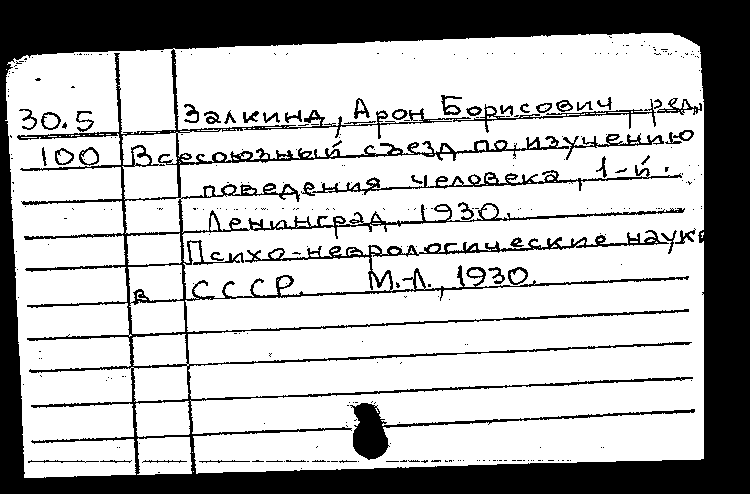 30.5 Залкинд, Арон Борисович, ред.
100 Всесоюзный съезд по изучению
поведения человека, 1-й.
Ленинград, 1930.
Психо-неврологические науки
в СССР. М.-Л., 1930.